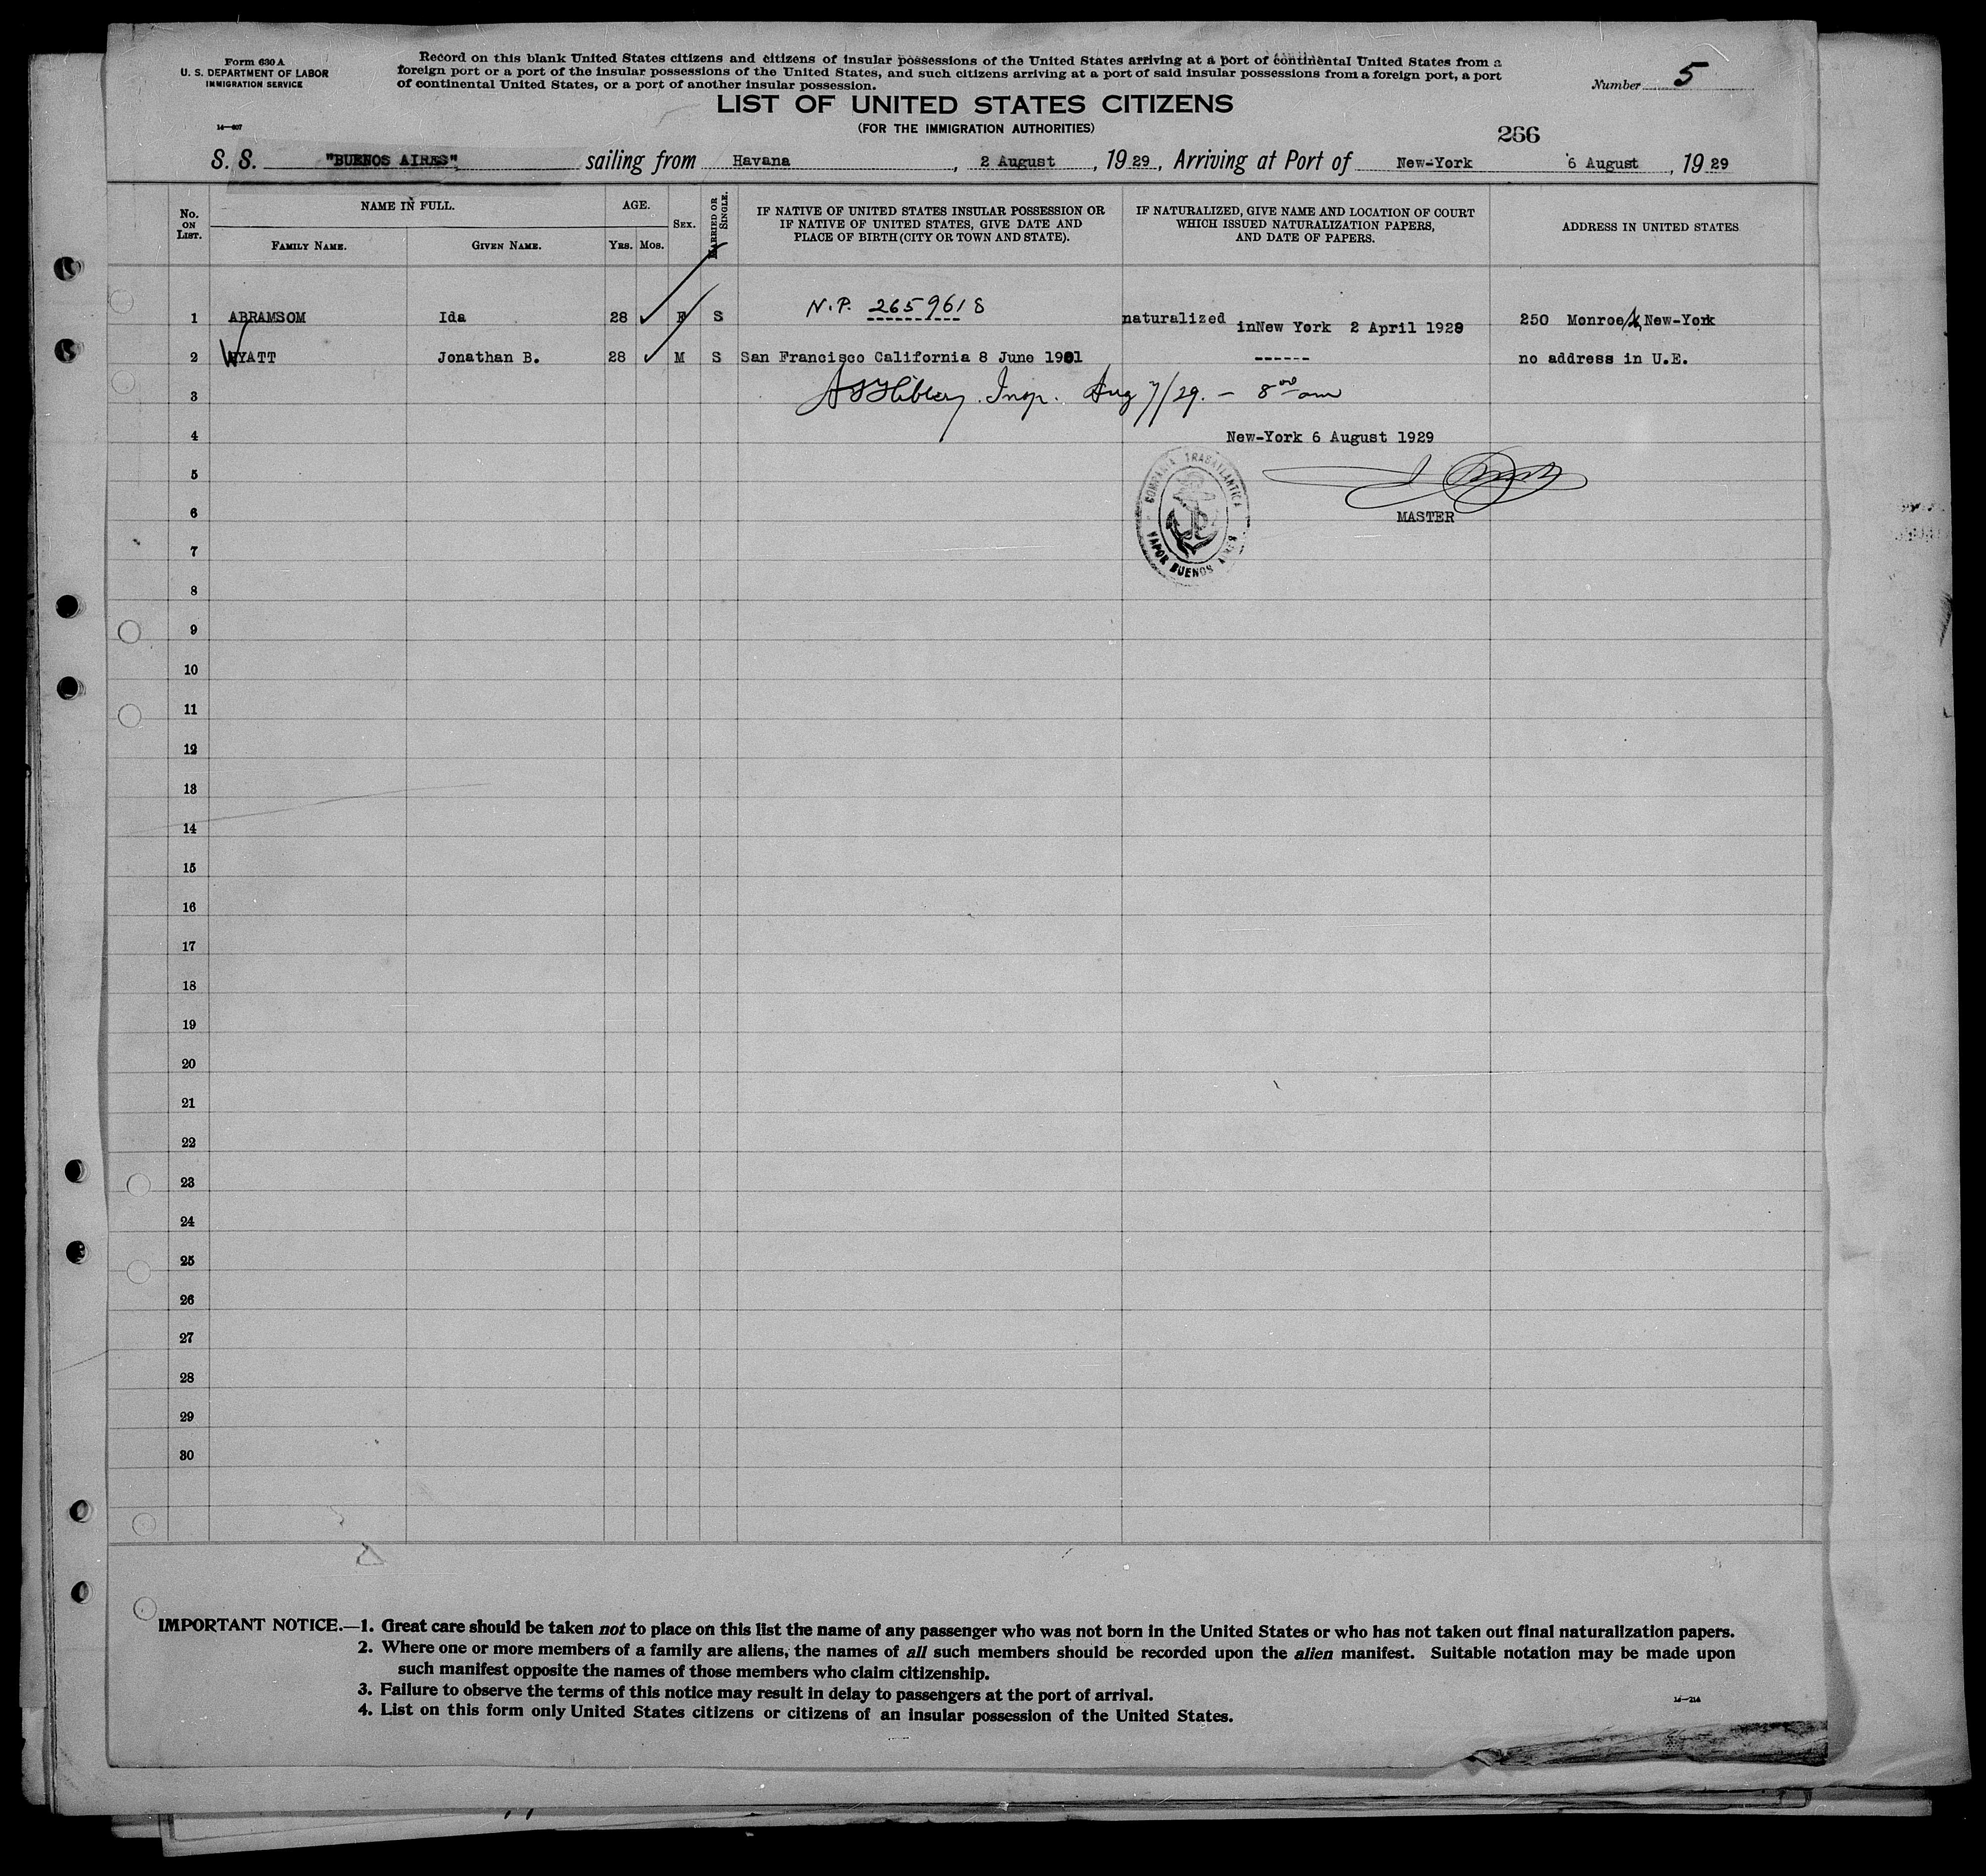 Form 630 A
U. S. DEPARTMENT OF LABOR
IMMIGRATION SERVICE
Record on this blank United States citizens and citizens of insular possessions of the United States arriving at a port of continental United States from a
foreign port or a port of the insular possessions of the United States, and such citizens arriving at a port of said insular possessions from a foreign port, a port
of continental United States, or a port of another insular possession.
Number 5
LIST OF UNITED STATES CITIZENS
(FOR THE IMMIGRATION AUTHORITIES)
266
S. S. "BUENOS AIRES" sailing from Havana, 2 August, 19 29, Arriving at Port of New-York 6 August, 19 29
No. ON LIST.
NAME IN FULL.
FAMILY NAME.
GIVEN NAME.
AGE.
YRS.
MOS.
SEX.
MARRIED OR SINGLE.
IF NATIVE OF UNITED STATES INSULAR POSSESSION OR
IF NATIVE OF UNITED STATES, GIVE DATE AND
PLACE OF BIRTH (CITY OR TOWN AND STATE).
IF NATURALIZED, GIVE NAME AND LOCATION OF COURT
WHICH ISSUED NATURALIZATION PAPERS,
AND DATE OF PAPERS.
ADDRESS IN UNITED STATES
1 ABRAMSOM Ida 28 F S N.P. 2659618 naturalized inNew York 2 April 1928 250 Monroe St, New-York
2 WYATT Jonathan B. 28 M S San Francisco California 8 June 1901 ------ no address in U.E.
3 Insp. Aug 7/29. – 8 00 am
4 New-York 6 August 1929
5
6 MASTER
COMPAÑIA TRASATLANTICA
VAPOR BUENOS AIRES
7
8
9
10
11
12
13
14
15
16
17
18
19
20
21
22
23
24
25
26
27
28
29
30
IMPORTANT NOTICE.—1. Great care should be taken not to place on this list the name of any passenger who was not born in the United States or who has not taken out final naturalization papers.
2. Where one or more members of a family are aliens, the names of all such members should be recorded upon the alien manifest. Suitable notation may be made upon
such manifest opposite the names of those members who claim citizenship.
3. Failure to observe the terms of this notice may result in delay to passengers at the port of arrival.
4. List on this form only United States citizens or citizens of an insular possession of the United States.